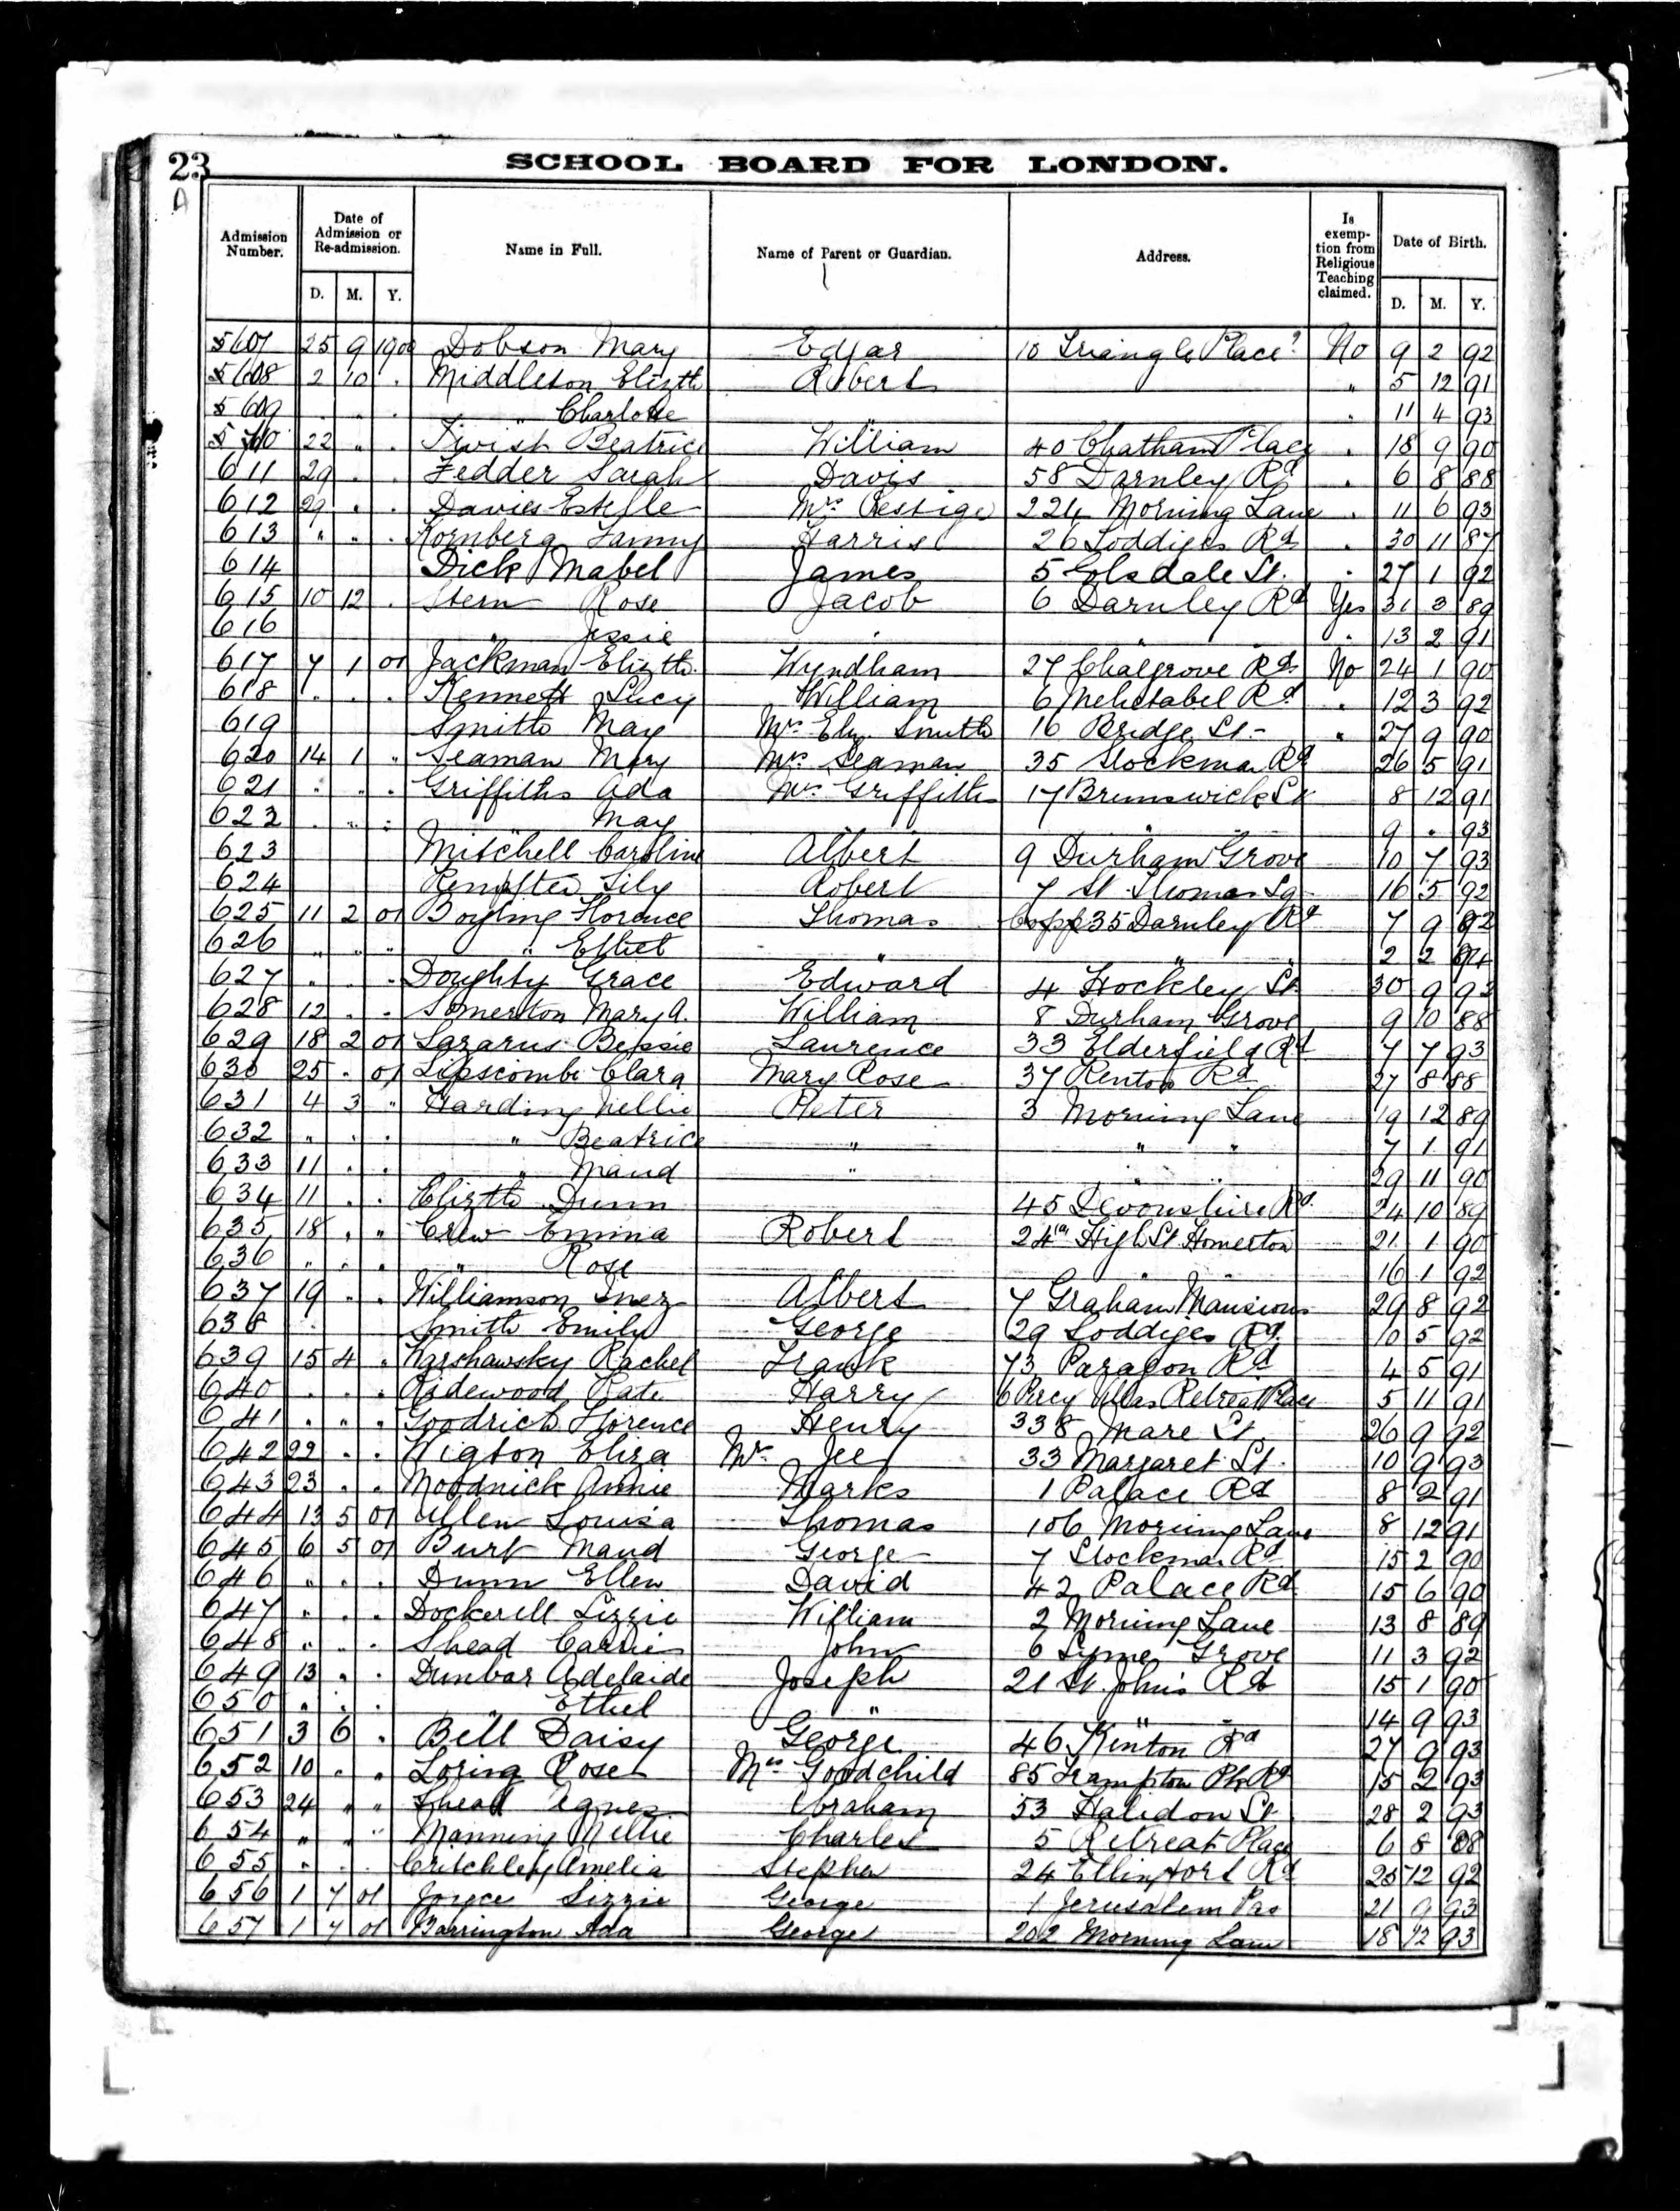 23
A
SCHOOL BOARD FOR LONDON.
Admission Number. Date of Admission or Re-admission. Name in Full. Name of Parent or Guardian. Address. Is exemption from Religious Teaching claimed. Date of Birth.
D. M. Y. D. M. Y.
5607 25 9 1900 Dobson Mary Edgar 10 Triangle Place No 9 2 92
5608 2 10 . Middleton Elizth Robert " 5 12 91
5609 . " . " Charlotte " . 11 4 93
22 " . Twist Beatrice William 40 Chatham Place . 18 9 90
611 29 . . Fedder Sarah Davis 58 Darnley Rd . 6 8 88
612 29 . . Davies Estelle Mrs Prestige 224 Morning Lane . 11 6 93
613 " " . Kornberg Fanny Harris 26 Loddiges Rd . 30 11 87
614 Dick Mabel James 5 St. . 27 1 92
615 10 12 . Stern Rose Jacob 6 Darnley Rd Yes 31 3 89
616 " Jessie " " " 13 2 91
617 7 1 01 Jackman Elizth. Wyndham 27 Chalgrove Rd No 24 1 90
618 . . . Kennett Lucy William 6 Mehetabel Rd . 12 3 92
619 Smith May Mrs Eliz. Smith 16 Bridge St - " 27 9 90
620 14 1 " Seaman Mary Mrs Seaman 35 Stockmar Rd 26 5 91
621 . . . Griffiths Ada Mrs Griffiths 17 Brunswick St 8 12 91
622 . " . " May " " 9 . 93
623 Mitchell Caroline Albert 9 Durham Grove 10 7 93
624 Lily Robert 7 St Thomas Sq 16 5 92
625 11 2 01 Boyling Florence Thomas 35 Darnley Rd 7 9 92
626 " " " " Ethel " " " 2 2 94
627 . . . Doughty Grace Edward 4 Hockley St. 30 9 93
628 12 . . Somerton Mary A. William 8 Durham Grove 9 10 88
629 18 2 01 Lazarus Bessie Laurence 33 Elderfield Rd 7 7 93
630 25 . 01 Lipscombe Clara Mary Rose 37 Rd 27 8 88
631 4 3 " Harding Nellie Peter 3 Morning Lane 19 12 89
632 " . . " Beatrice " " " 7 1 91
633 11 . . " Maud " " " 29 11 90
634 11 . . Elizth Dunn 45 Devonshire Rd. 24 10 89
635 18 . " Crew Emma Robert 24a High St Homerton 21 1 90
636 " . . " Rose " 16 1 92
637 19 . . Williamson Inez Albert 7 Graham Mansions 29 8 92
638 . Smith Emily George 29 Loddiges Rd. 10 5 92
639 15 4 . Warshawsky Rachel Frank 73 Paragon Rd 4 5 91
640 . . . Ridewood Kate Harry 6 Percy Villas Retreat Place 5 11 91
641 " " . Goodrich Florence Henry 338 Mare St. 26 9 92
642 22 . . Wigton Eliza Mr. Jee 33 Margaret St. 10 9 93
643 23 . . Moodnick Annie Marks 1 Palace Rd 8 2 91
644 13 5 01 Allen Louisa Thomas 106 Morning Lane 8 12 91
645 6 5 01 Burt Maud George 7 Stockmar Rd 15 2 90
646 " . . Dunn Ellen David 42 Palace Rd 15 6 90
647 " . . Dockerell Lizzie William 2 Morning Lane 13 8 89
648 " . . Shead Carrie John 6 Lyme Grove 11 3 92
649 13 . . Dunbar Adelaide Joseph 21 St. John's Rd 15 1 90
650 " . . " Ethel " " 14 9 93
651 3 6 . Bell Daisy George 46 Kenton Rd 27 9 93
652 10 . " Loring Rose Mrs Goodchild 85 Frampton Pk Rd 15 2 93
653 24 " " Shead Agnes Abraham 53 Halidon St 28 2 93
654 " " " Manning Nellie Charles 5 Retreat Place 6 8 88
655 . . . Critchley Amelia Stephen 24 Ellingfort Rd 25 12 92
656 1 7 01 Joyce Lizzie George 1 Jerusalem Pas 21 9 93
657 1 7 01 Barrington Ada George 202 Morning Lane 18 12 93